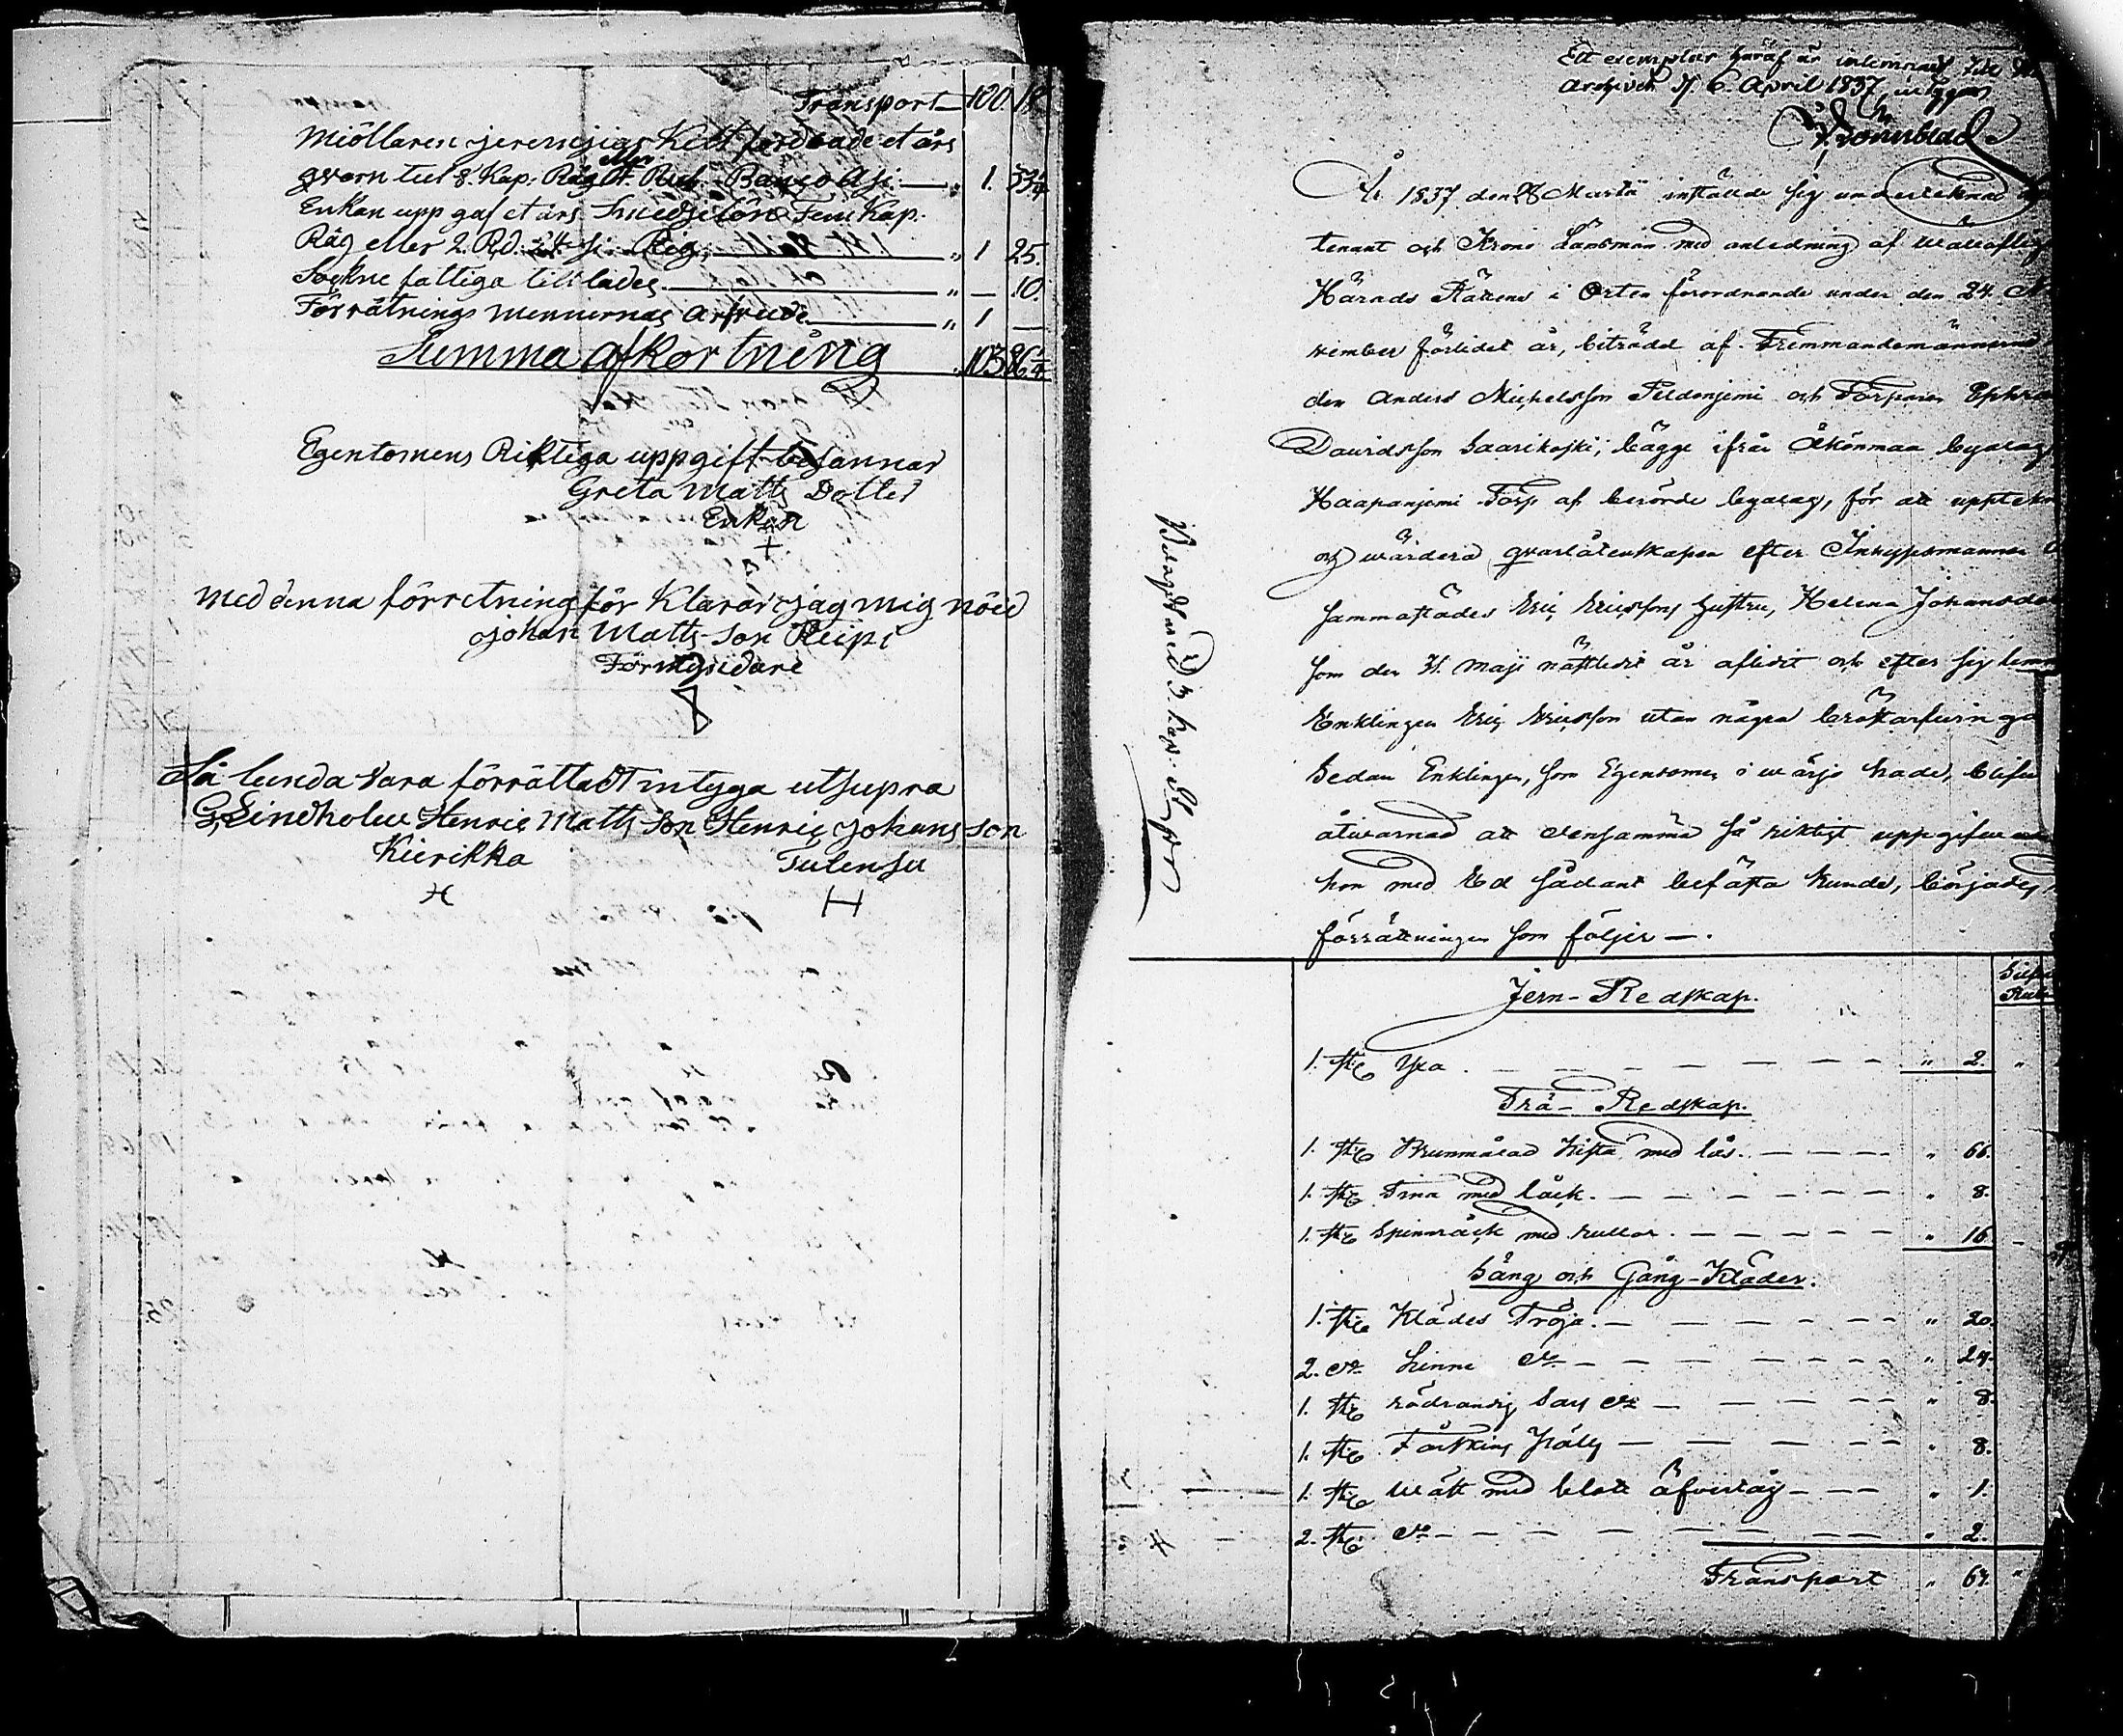 Transport 100. 18
Miöllaren jeremias Kett fordrade et års
qvarn tul 8. Kap: Råg eller Rub. Banco Asi: " 1. 33¼
Enkan upp gaf et års Smedjelön Fem Kap.
Råg eller 2. Rd. 24 s: Rig: " 1 25.
Sockne fattiga till lades " — 10.
Förrätnings mennernas arfvude " 1 —
Summa afkortning 103 86¼
Egentomens Riktiga uppgift besannar
Greta Matts Dotter
Enkan
+
med denna förretning för Klarar jag mig nöid
johan Matts-son Reipi
Förmyndare
Så lunda vara förrättadt intyga utsupra
G. Lindholm Henric Matts Son Henric Johansson
Kierikka Tulensu
H H
Ett exemplar häraf är inlemnadt till
Archivet d. 6. April 1837, intygar
Rönnblad
År 1837 den 28 Martii inställde sig undertecknad
tenant och Krono Länsman med anledning af
Härads Rättens i Orten förordnande under den 24.
vember förlidet år, biträdd af Fremmandemännerne
den Anders Michelsson Peldonjemi och Torparen Ephra
Davidsson Saarikoski, bägge ifrån Åkönmaa byalag,
Haapanjemi Torp af berörde byalag, för att uppteckn
och wärdera qvarlåtenskapen efter Inhysesmannen
sammastädes Eric Ericssons hustru, Helena Johansdo
som den 31. Maji nästledit år aflidit och efter sig lemn
Enklingen Eric Ericsson utan några bröstarfvingar
Sedan Enklingen, som Egendomen i wärjo hade, blifvit
åtvarnad att densamma så riktigt uppgifva
hon med Ed sådant befästa kunde, börjades
förrättningen som följer —.
Jern-Redskap.
1. st. Yxa " 2. "
Trä-Redskap.
1. st. Brunmålad Kista med lås. " 66.
1. st. Tina med låck. " 8.
1. st. Spinnråck med rullor. " 16
Säng och Gång-Kläder.
1. st. Klädes Tröja. " 20.
2. do Linne do " 24.
1. st. rödrandig Sars do " 8.
1. st. Fårskins Päls " 8.
1. st. Mått med blått öfvertåg " 1.
2. st. do " 2.
Transport " 67. "